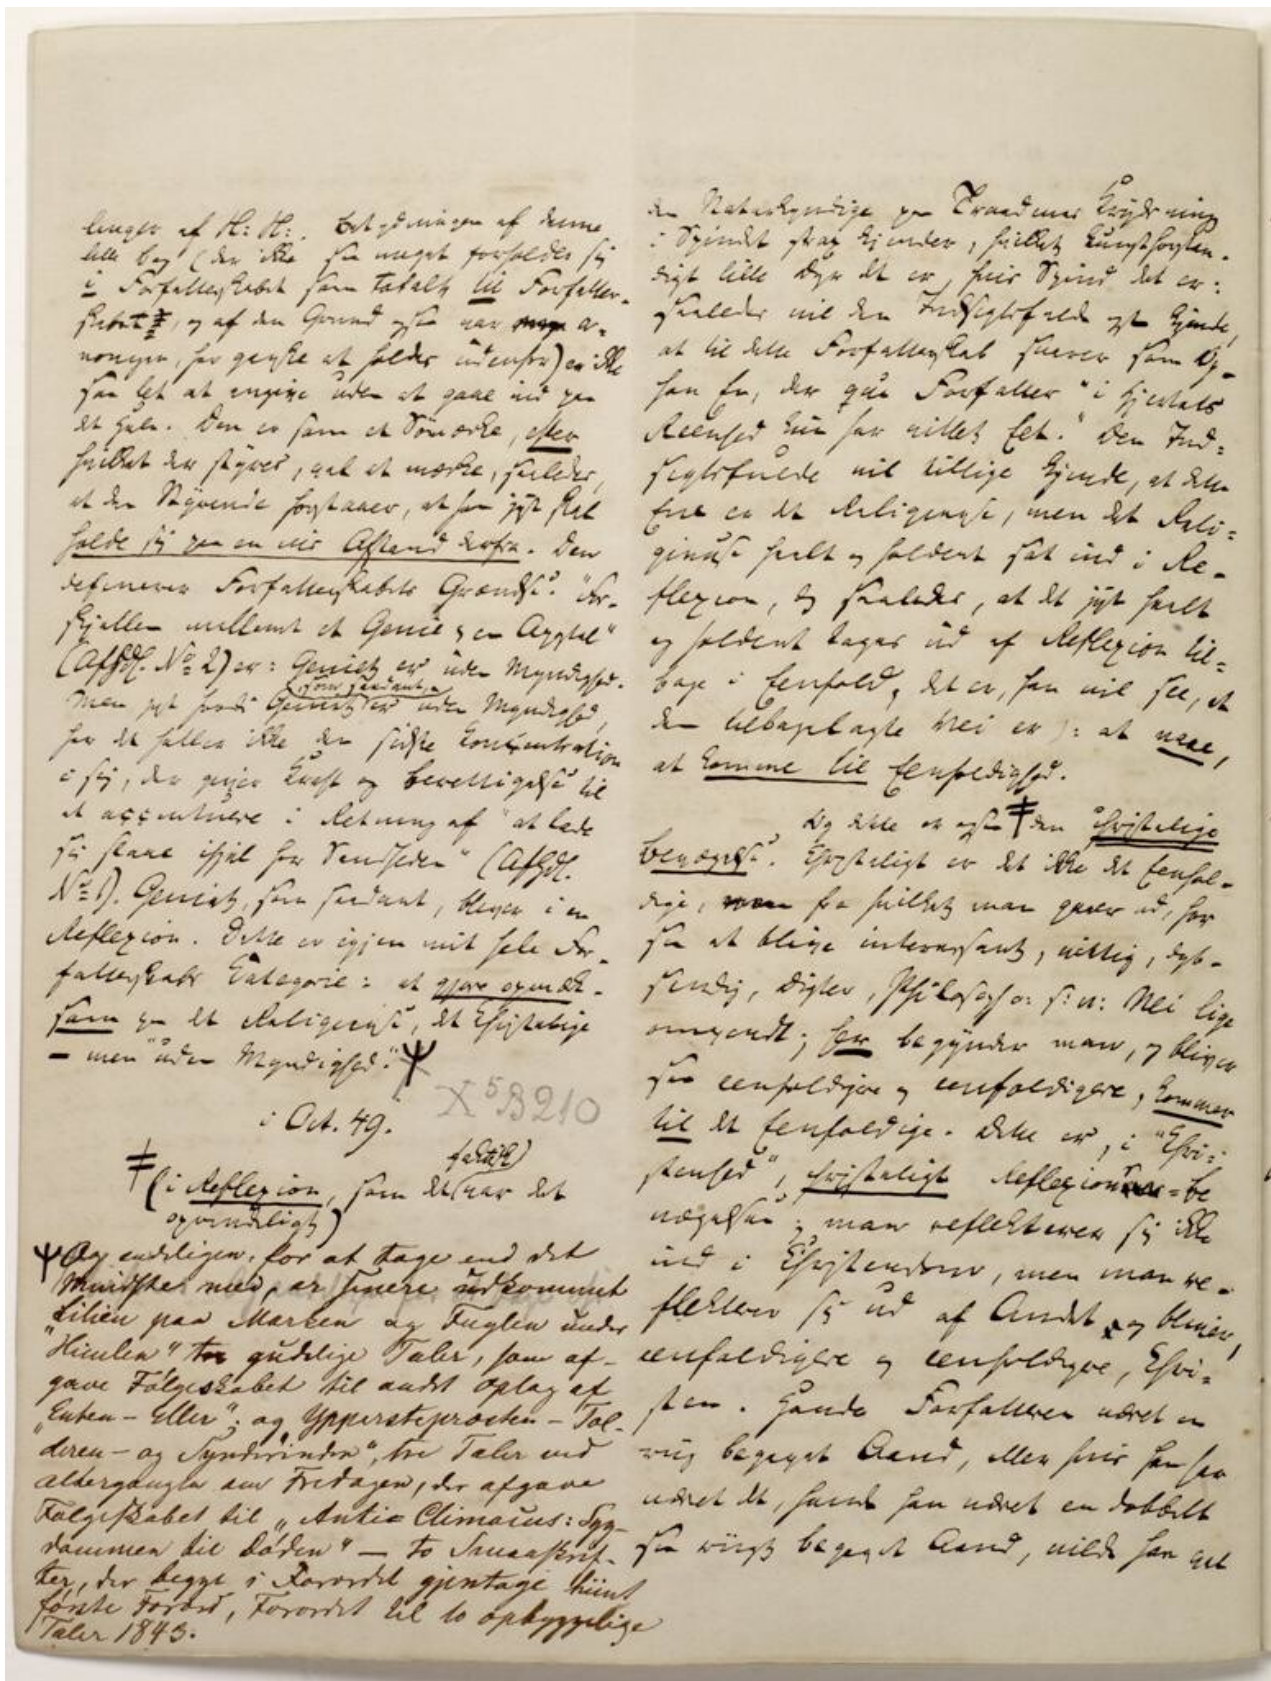 linger af H: H:. Betydningen af denne
lille bog (der ikke saa meget forholder sig
i Forfatterskabet som totalt til Forfatter-
skabet, og af den Grund ogsaa var a-
nonym, for ganske at holdes udenfor) er ikke
saa let at angive uden at gaae ind paa
det Hele. Den er som et Sömærke, efter
hvilket der styres, vel at mærke, saaledes,
at den Styrende forstaaer, at han just skal
holde sig paa en vis Afstand derfra. Den
definerer Forfatterskabets Grændse. "For-
skjellen mellem et Genie og en Apostel"
(Afhdl. No 2) er: Geniet er uden Myndighed.
Men just fordi Geniet som saadant er uden Myndighed,
har det heller ikke den sidste Concentration
i sig, der giver Kraft og Berettigelse til
at accentuere i Retning af "at lade
sig slaae ihjel for Sandheden" (Afhdl.
No 1). Geniet, som saadant, bliver i en
Reflexion. Dette er igjen mit hele For-
fatterskabs Categorie: at gjøre opmærk-
som paa det Religieuse, det Christelige
– men "uden Myndighed." Ψ
X⁵ B 210
i Oct. 49.
‡ (i Reflexion, som det faktisk var det
oprindeligt)
Ψ Og endeligen, for at tage end det
Mindste med, er senere udkommet
"Lilien paa Marken og Fuglen under
Himlen" tre gudelige Taler, som af-
gave Følgeskabet til andet Oplag af
"Enten – Eller"; og Ypperstepræsten – Tol-
deren – og Synderinden", tre Taler ved
Altergangen om Fredagen, der afgave
Følgeskabet til "Anti-Climacus: Syg-
dommen til Døden" – to Smaaskrif-
ter, der begge i Forordet gjentage hiint
første Forord, Forordet til to opbyggelige
Taler 1843.
den Naturkyndige paa Traadenes Krydsning
i Spindet strax kjender, hvilket kunstforstan-
digt lille Dyr det er, hvis Spind det er:
saaledes vil den Indsigtsfulde ogsaa kjende,
at til dette Forfatterskab svarer som Op-
hav En, der qua Forfatter "i Hjertets
Reenhed kun har villet Eet." Den Ind-
sigtsfulde vil tillige kjende, at dette
Ene er det Religieuse, men det Reli-
gieuse heelt og holdent sat ind i Re-
flexion, dog saaledes, at det just heelt
og holdent tages ud af Reflexion til-
bage i Eenfold, det er, han vil see, at
den tilbagelagte Vei er ): at naae,
at komme til Eenfoldighed.
Og dette er ogsaa ‡ den christelige
Bevægelse. Christeligt er det ikke det Eenfol-
dige, fra hvilket man gaaer ud, for
saa at blive interessant, vittig, dyb-
sindig, Digter, Philosoph o: s: v: Nei lige
omvendt; her begynder man, og bliver
saa eenfoldigere og eenfoldigere, kommer
til det Eenfoldige. Dette er, i "Chri-
stenhed", christeligt Reflexions-Be
vægelsen; man reflekterer sig ikke
ind i Christendom, men man re-
flekterer sig ud af Andet og bliver,
eenfoldigere og eenfoldigere, Chri-
sten. Havde Forfatteren været en
riig begavet Aand, eller hvis han har
været det, havde han været en dobbelt
saa riigt begavet Aand, vilde han vel